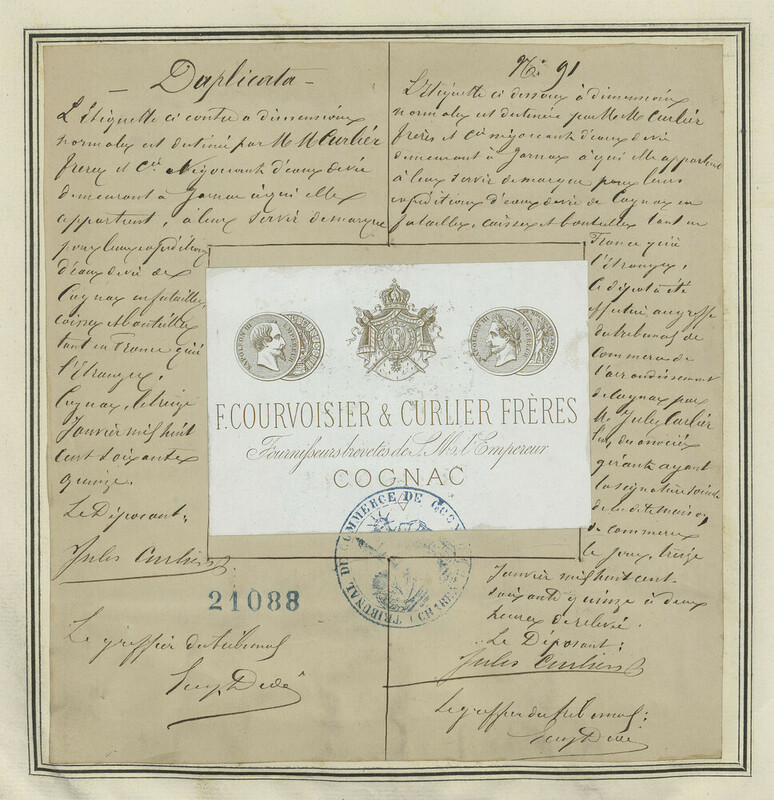 Duplicata
L'étiquette ci contre a dimensions
normales est destiné par M M Curlier
frères et Cie Négociant d'eaux de vie
demeurant à Jarnac à qui elle
appartient, à leur servir de marque
pour leurs expéditions
d'eaux de vie de
Cognac en futailles,
caisses et bouteilles
tant en France qu'à
l'étranger.
Cognac, le treize
Janvier mil huit
cent soixante
quinze.
Le Déposant:
Jules Curlier
21088
Le greffier du tribunal
No 91
L'étiquette ci dessous à dimensions
normales est destinée par M M Curlier
frères et Cie négociant d'eaux de vie
demeurant à Jarnac à qui elle appartient
à leur servir de marque pour leurs
expéditions d'eaux de vie de Cognac en
futailles, caisses et bouteilles tant en
France qu'à
l'étranger.
Le dépôt a été
effectué au greffe
du tribunal de
Commerce de
l'arrondissement
de Cognac par
Mr Jules Curlier
l'un des associés
gérants ayant
la signature sociale
de la dite maison
de commerce
le jour, treize
Janvier mil huit cent
soixante quinze à deux
heures de relevé.
Le Déposant:
Jules Curlier
Le greffier du tribunal:
NAPOLEON III EMPEREUR
NAPOLEON III EMPEREUR
F. COURVOISIER & CURLIER FRÈRES
Fournisseurs brevetés de S. M. l'Empereur
COGNAC
TRIBUNAL DE COMMERCE DE COGNAC